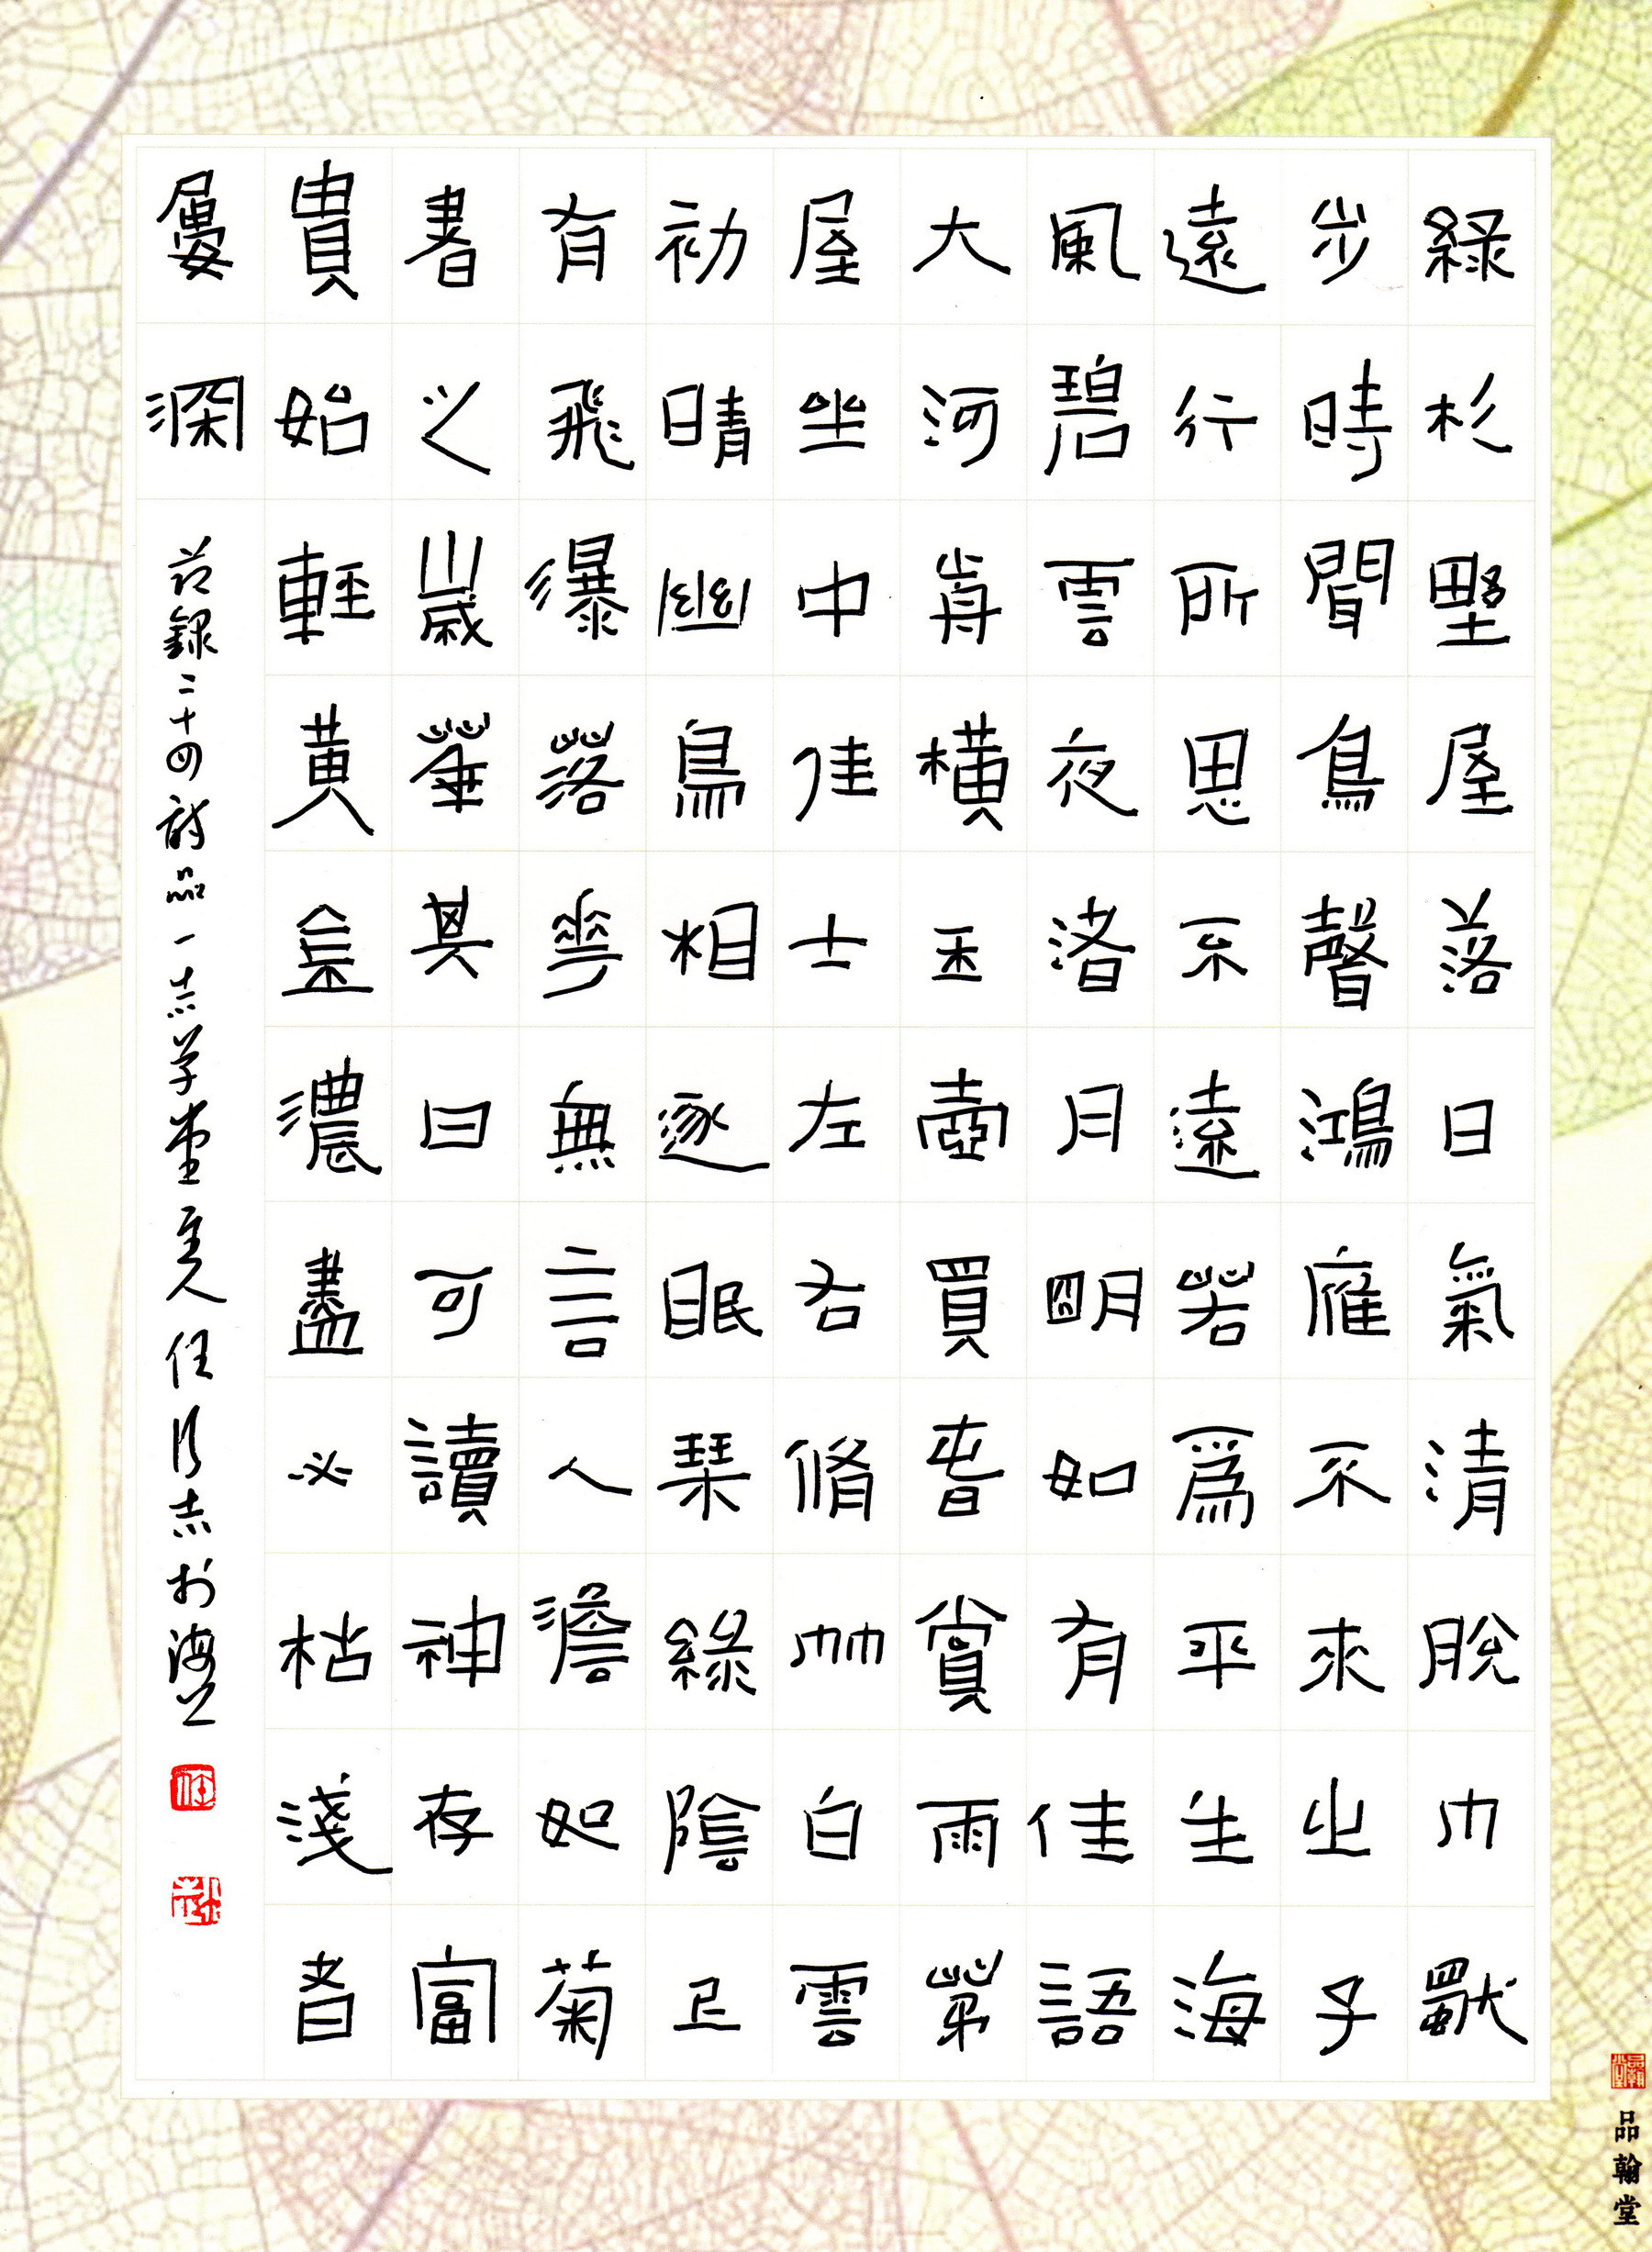 綠杉野屋落日氣清脫巾獨
步時聞鳥聲鴻雁不來之子
遠行所思不遠若爲平生海
風碧雲夜渚月明如有佳語
大河前橫玉壺買春賞雨茅
屋坐中佳士左右脩竹白雲
初晴幽鳥相逐眠琴綠陰上
有飛瀑落華無言人澹如菊
書之歲華其曰可讀神存富
貴始輕黃金濃盡必枯淺者
屢深
节録二十四詩品一志学堂主人任志於海上
品翰堂